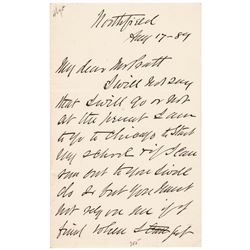 Northfield
Aug 17-89
My dear Mr Pratt
I will not say
that I will go or not
at the present I am
to go to Chicago to start
my school & if I can
run out to you I will
do so but you must
not rely on me if I
find when I get